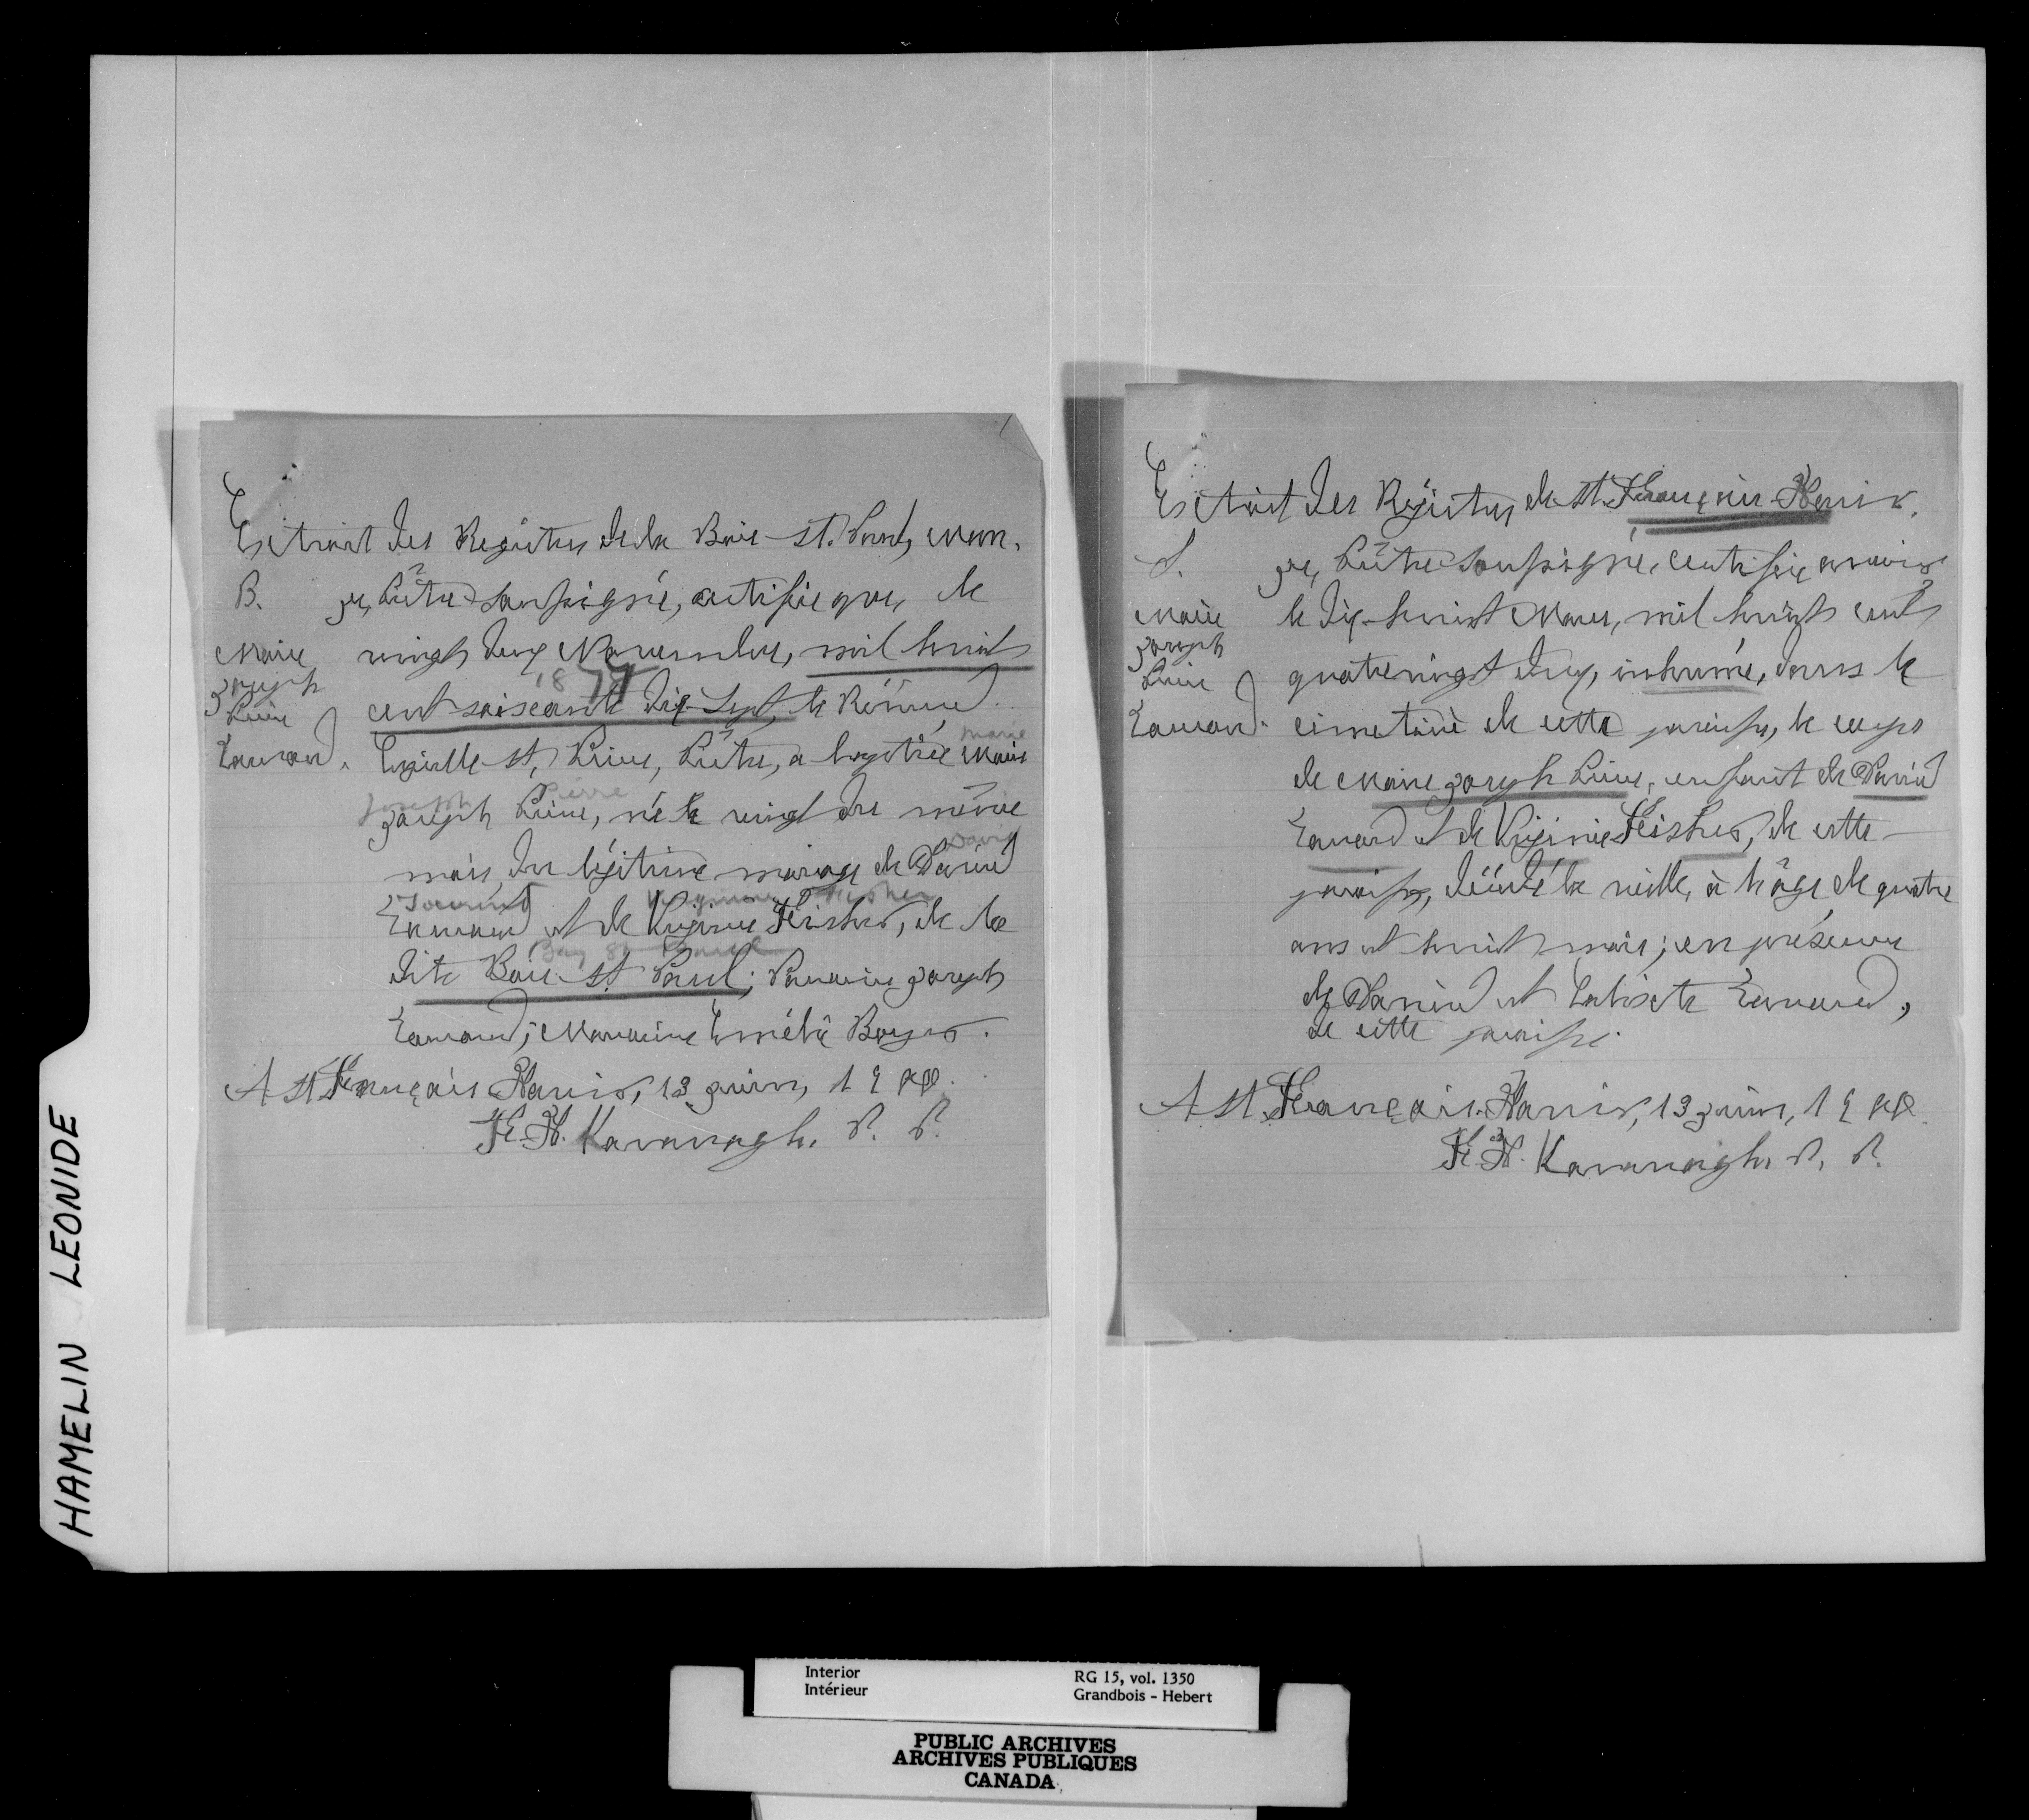 HAMELIN LEONIDE
Extrait des Registres de la Baie-St. Paul, Man.
B.
Marie
Joseph
Pierre
Je, Prêtre soussigné, certifie que, le
vingt deux Novembre, mil huit
1877
cent soixante dix-sept, le Révérend
St. Pierre, Prêtre, a baptisé Marie
Marie
Joseph Pierre, né le vingt du même
Joseph Pierre
mois, du légitime mariage de David
David
et de Virginie Fisher, de la
Fisher
dite Baie-St. Paul; Parrain Joseph
Bay St Paul
Marraine Boyer.
A St François Xavier, 13 juin, 1900.
F. X. Kavanagh, P. P.
Extrait des Registres de St. François-Xavier.
S.
Marie
Joseph
Pierre
Je, Prêtre soussigné, certifie avoir
le dix-huit Mars, mil huit cent
quatrevingt deux, inhumé, dans le
cimetière de cette paroisse, le corps
de Marie Joseph Pierre, enfant de David
et de Virginie Fisher, de cette
paroisse, décédé la veille, à l'âge de quatre
ans et huit mois; en présence
de David et
de cette paroisse.
A St. François-Xavier, 13 juin, 1900.
F. X. Kavanagh, P. P.
Interior
Intérieur
RG 15, vol. 1350
Grandbois - Hebert
PUBLIC ARCHIVES
ARCHIVES PUBLIQUES
CANADA